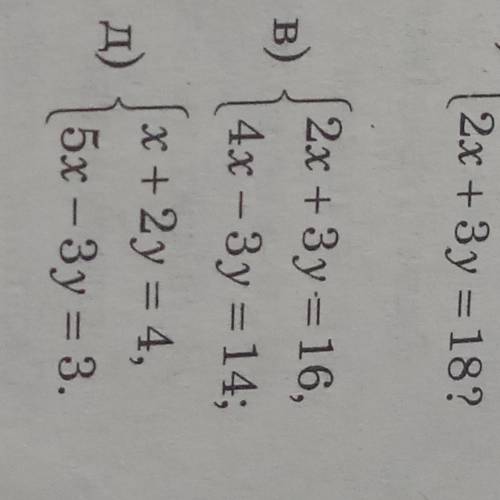 2x + 3y = 18?
в) 2x + 3y = 16,
4x − 3y = 14;
д) x + 2y = 4,
5x − 3y = 3.